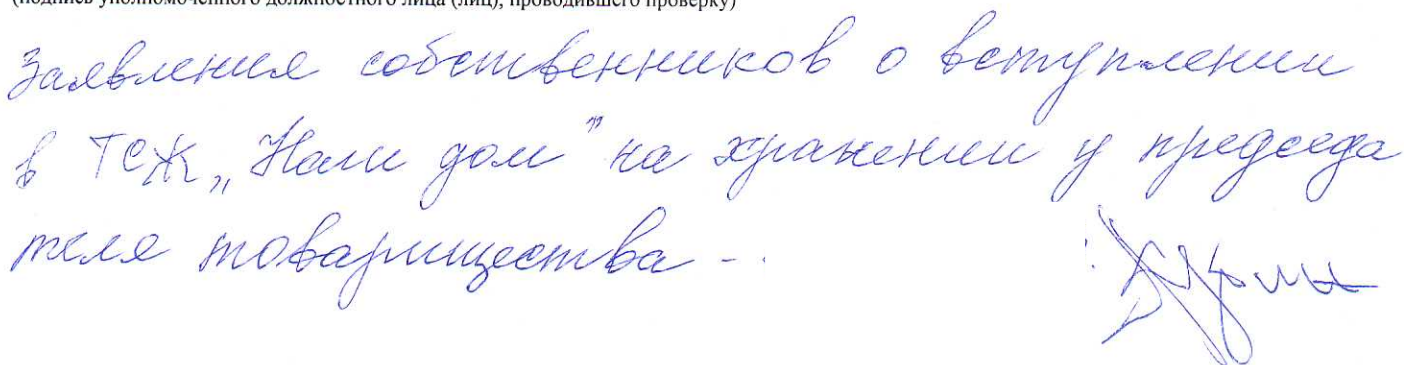 (подпись уполномоченного должностного лица (лиц), проводившего проверку)
Заявления собственников о вступлении
в ТСЖ „Наш дом” на хранении у председа
теля товарищества -.